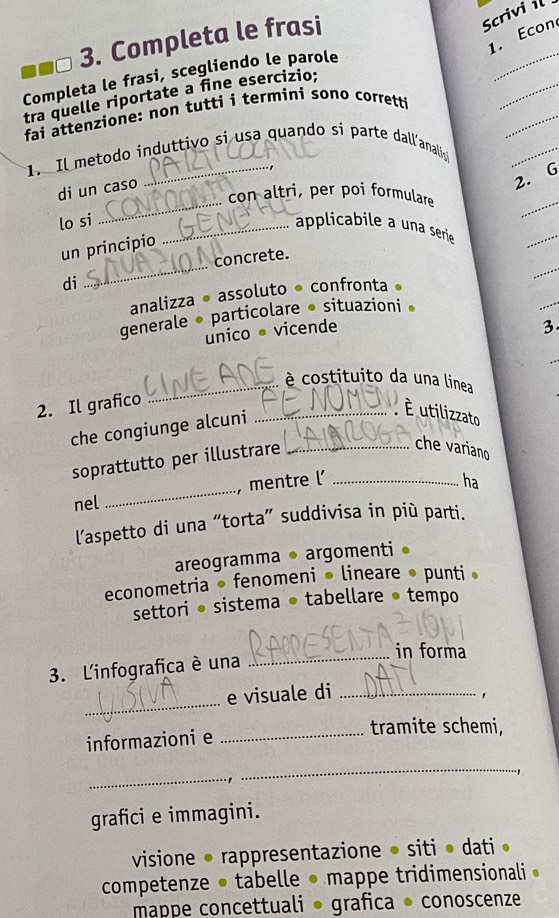 Scrivi il
1. Econ
3. Completa le frasi
Completa le frasi, scegliendo le parole
tra quelle riportate a fine esercizio;
fai attenzione: non tutti i termini sono corretti
1. Il metodo induttivo si usa quando si parte dall'analisi
di un caso PARTICOLARE,
lo si CONFRONTA con altri, per poi formulare
un principio GENERALE applicabile a una serie
di SITUAZIONI concrete.
analizza • assoluto • confronta •
generale • particolare • situazioni •
unico • vicende
2. G
3.
2. Il grafico LINEARE è costituito da una linea
che congiunge alcuni FENOMENI. È utilizzato
soprattutto per illustrare che variano
nel , mentre l' ha
l'aspetto di una "torta" suddivisa in più parti.
areogramma • argomenti •
econometria • fenomeni • lineare • punti •
settori • sistema • tabellare • tempo
3. L'infografica è una RAPPRESENTAZIONI in forma
VISIVA e visuale di DATI,
informazioni e tramite schemi,
, ,
grafici e immagini.
visione • rappresentazione • siti • dati •
competenze • tabelle • mappe tridimensionali •
mappe concettuali • grafica • conoscenze